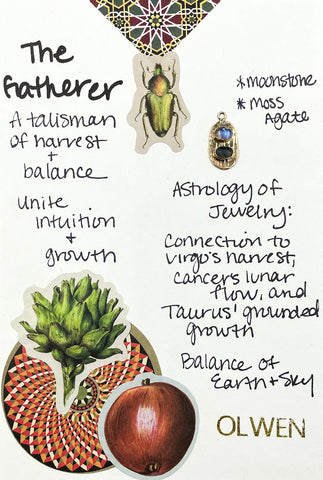 The
Gatherer
A talisman
of harvest
+
balance
Unite
intuition
+
growth
*moonstone
*moss
Agate
Astrology of
Jewelry:
Connection to
virgo's harvest,
cancers lunar
flow, and
Taurus' grounded
growth
Balance of
Earth + Sky
OLWEN